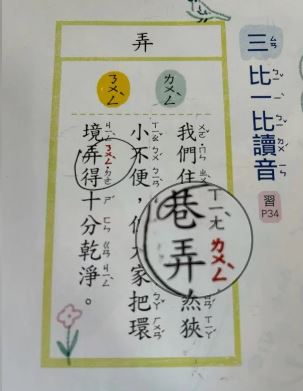 三 比一比讀音
習
P34
弄
ㄌㄨㄥˋ
ㄋㄨㄥˋ
我們住
巷弄
ㄒㄧㄤˋ ㄌㄨㄥˋ
然狹
小不便，大家把環
境弄得十分乾淨。
ㄋㄨㄥˋ